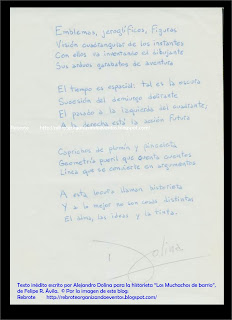 Emblemas, jeroglíficos, figuras
Visión cuadrangular de los instantes
Con ellos va inventando el dibujante
Sus arduos garabatos de aventura
El tiempo es espacial: tal es la escuela
Sucesión del domingo
El pasado a la izquierda del cuadrante;
A la derecha está la acción futura
Caprichos de plumín y
Geometría pueril que cuenta cuentos
Línea que se convierte en argumentos
A esta llaman historieta
Y a lo mejor no son cosas distintas
El alma, las ideas y la tinta.
Dolina
Texto inédito escrito por Alejandro Dolina para la historieta "Los Muchachos de barrio",
de Felipe R. Ávila. © Por la imagen de este blog:
Rebrote http://rebroteorganizandoeventos.blogspot.com/